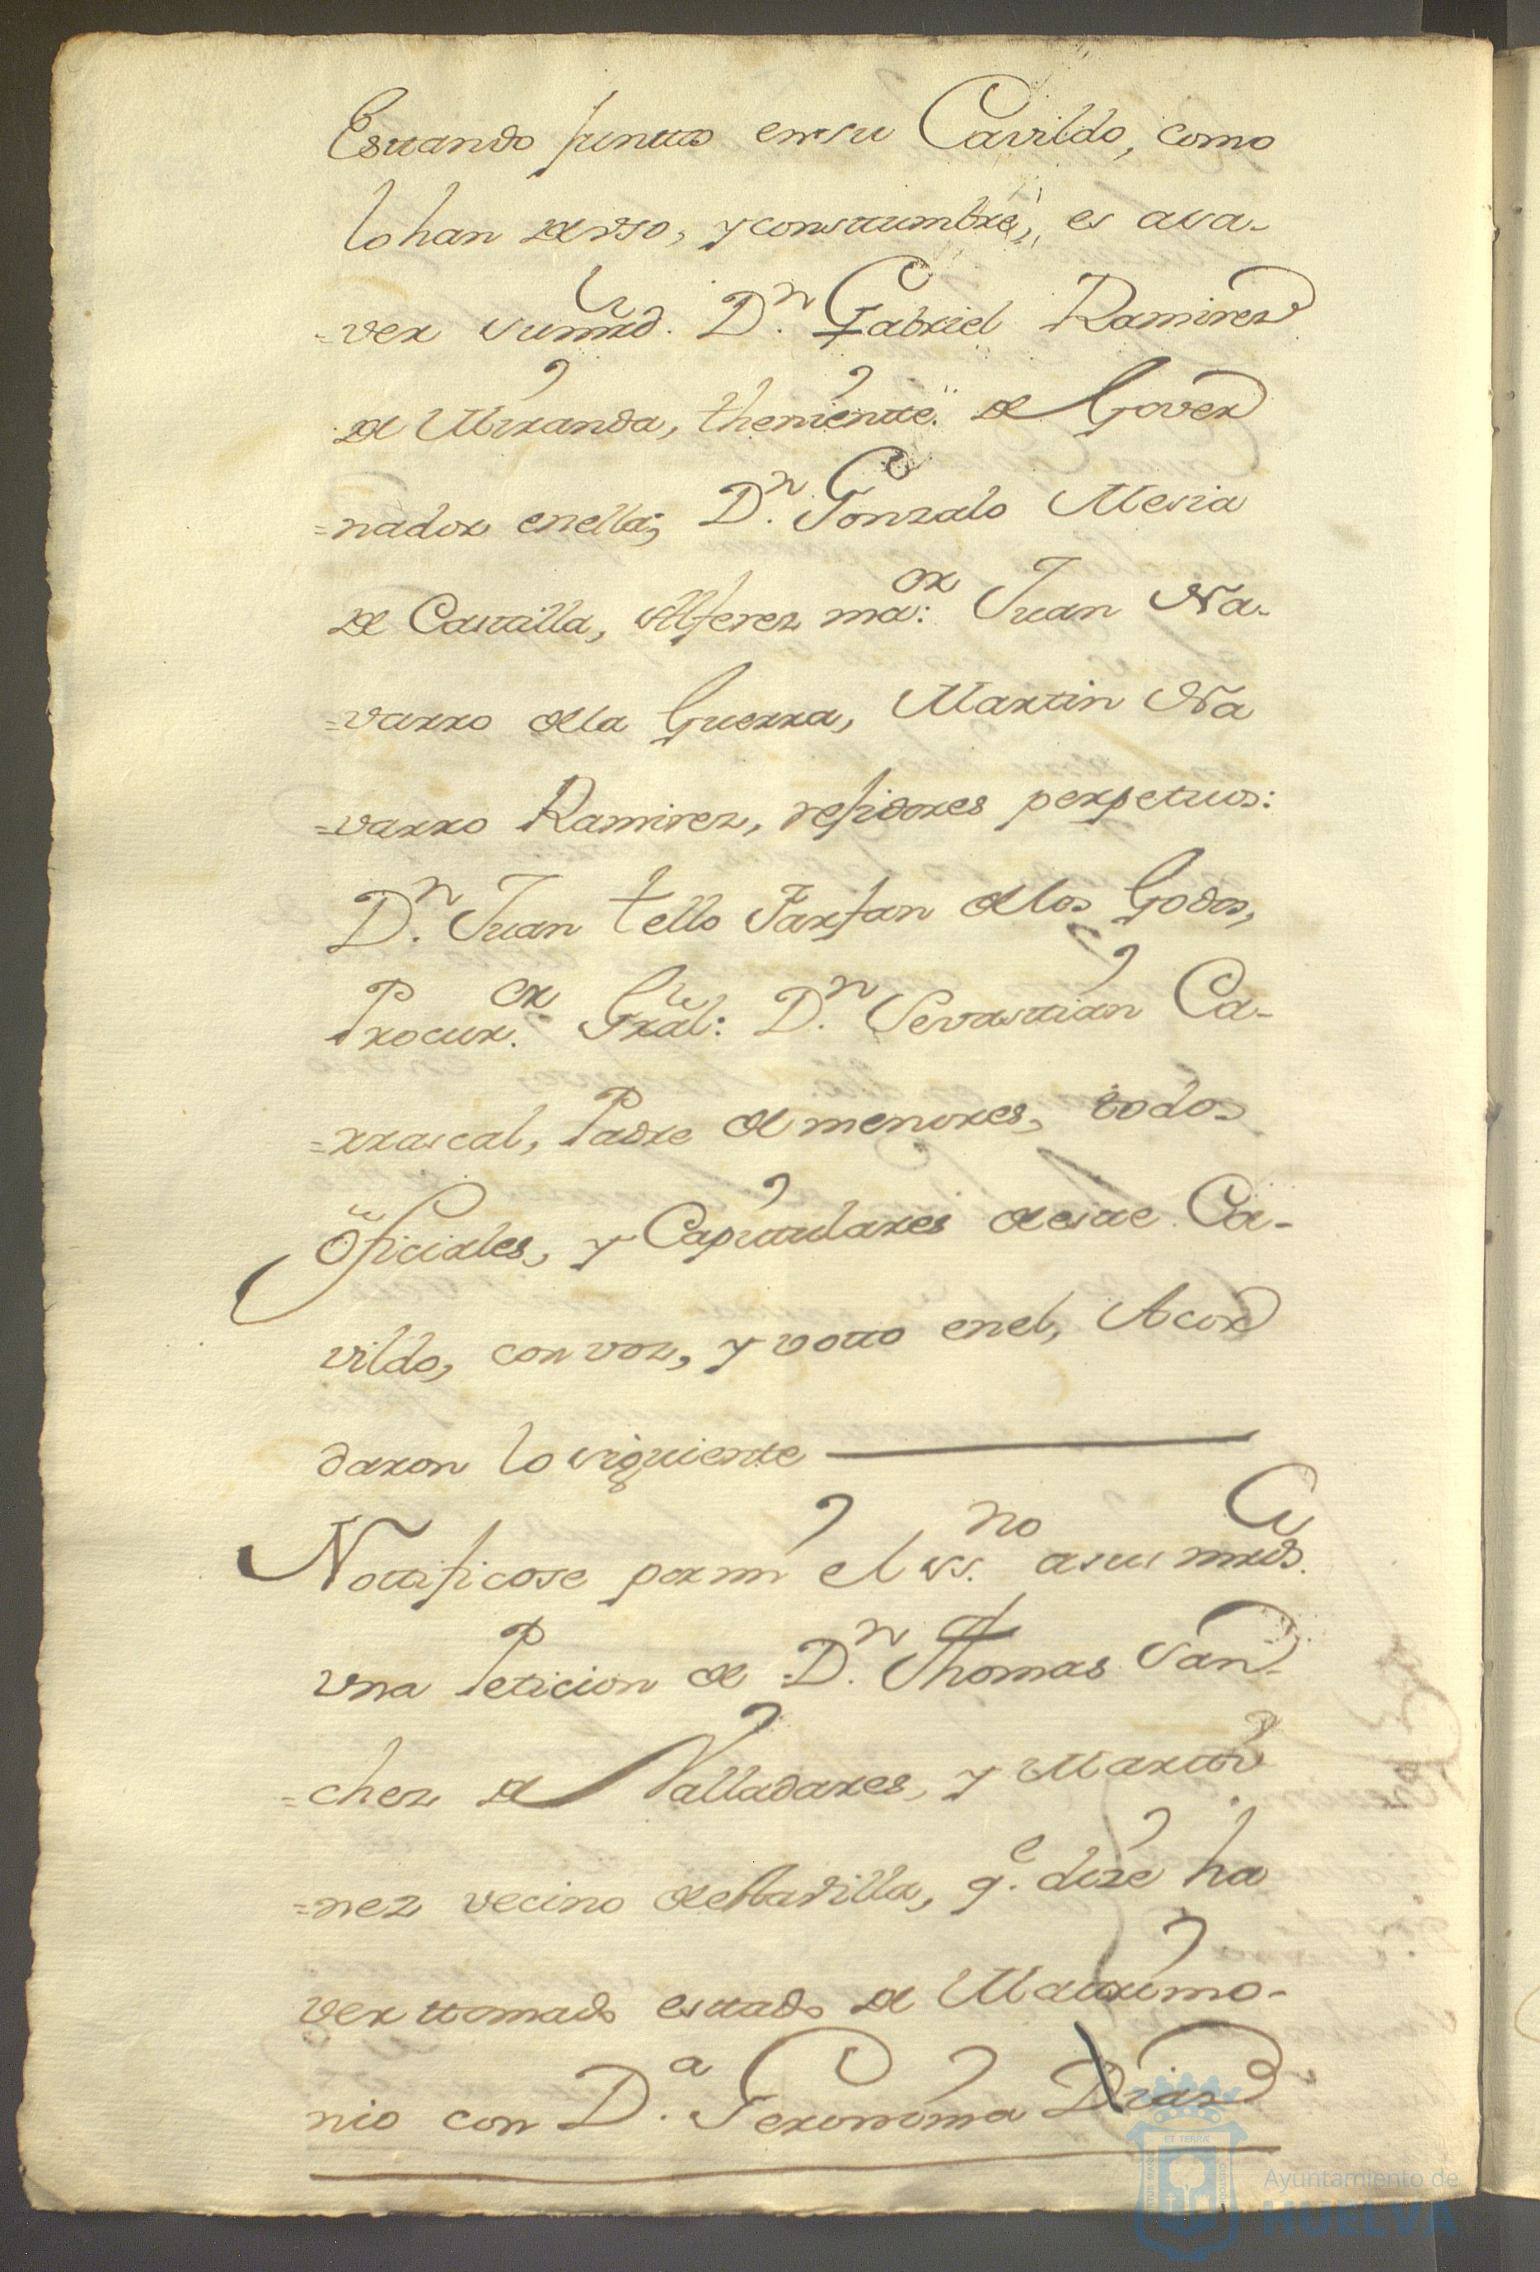 Estando juntos en su Cavildo, como
lo han de vso, y constumbre, es asa-
=ver su mrd. Dn. Gabriel Ramirez
de Miranda, theniente de Gover
=nador en ella; Dn. Gonzalo Mesia
de Castilla, Alferez maor: Juan Na-
=varro de la Guerra, Martin Na
=varro Ramirez, refidores perpetuos:
Dn. Juan tello Farfan de los Godos,
Procuror. Gral: Dn. Sevastian Ca-
=rrascal, Padre de menores, todos
Oficiales, y Capitulares de este Ca-
vildo, con voz, y votto en el, Acor
daron lo siguiente
Nottificose por mi el ess.no a sus mrds.
vna Peticion de Dn. Thomas San-
=chez de Valladares, y Marti
=nez vecino de esta villa, qe. dize ha
ver ttomado estado de Mattrimo-
nio con Da. Geronima Diaz
ET TERRÆ
Ayuntamiento de
HUELVA